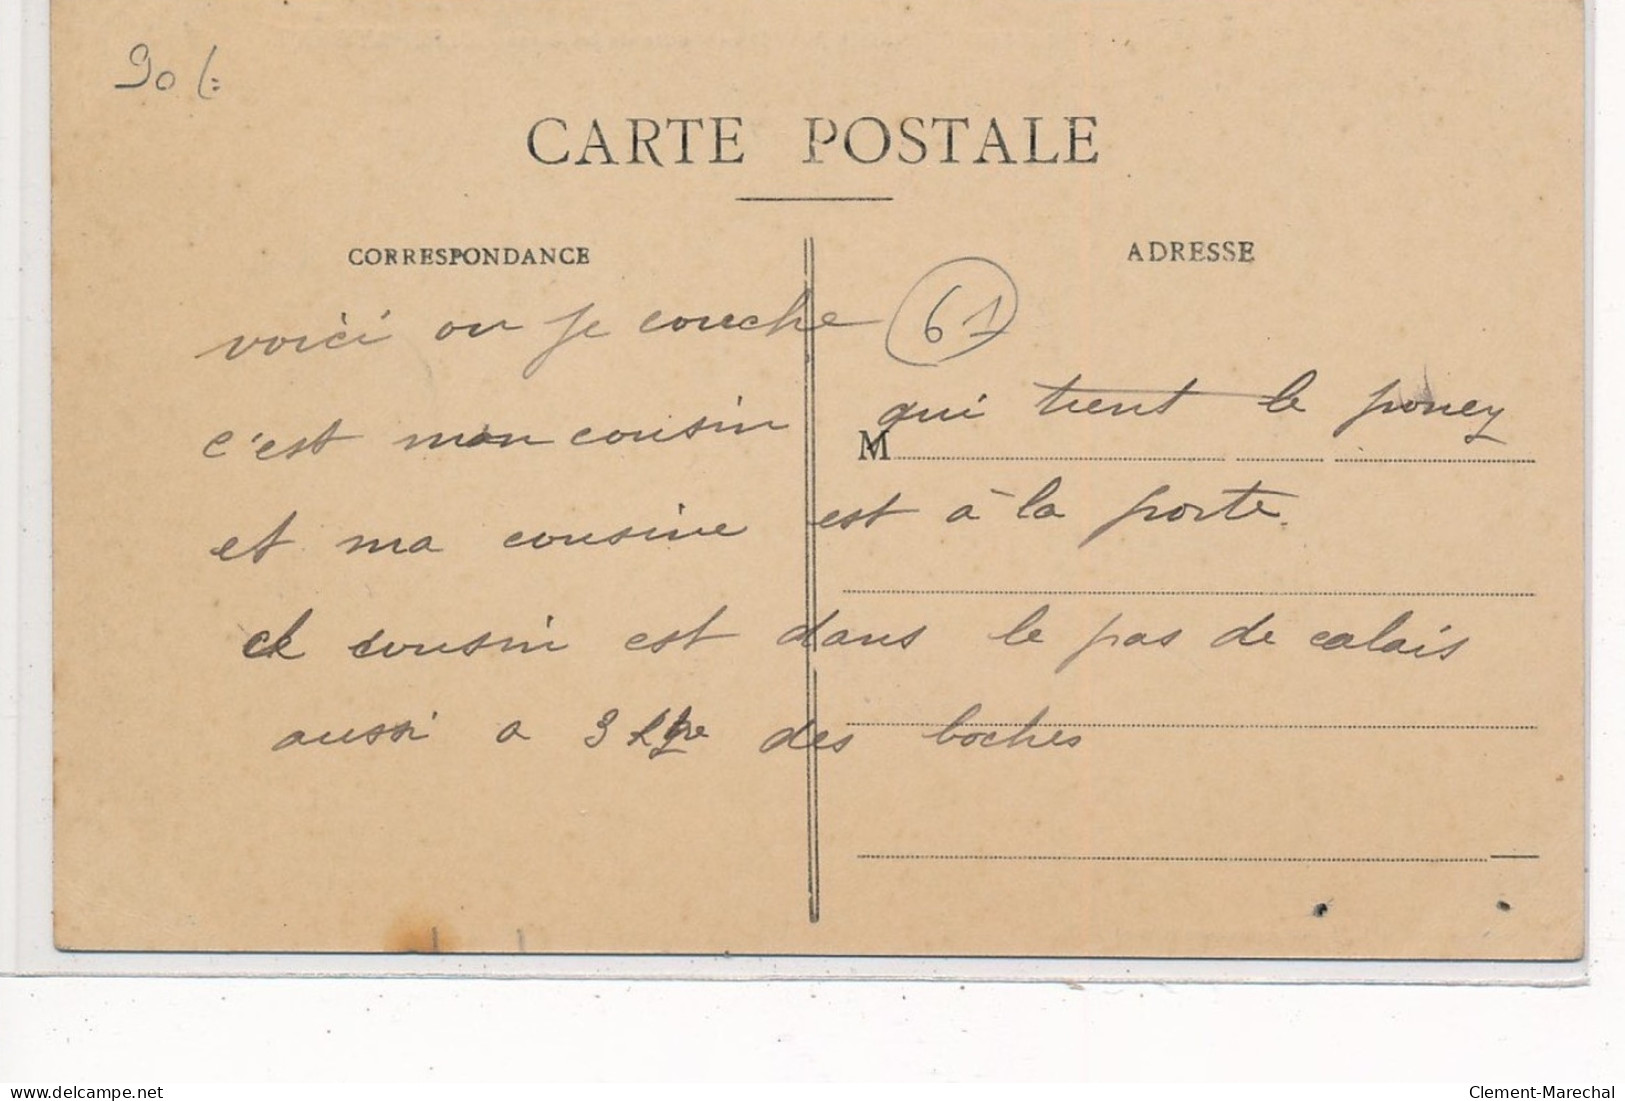 90 f
CARTE POSTALE
CORRESPONDANCE
ADRESSE
61
voici ou je couche
c'est mon cousin qui tient le poney
M
et ma cousine est à la porte.
cousin est dans le pas de calais
aussi a 3 des boches
delcampe.net
Clement-Marechal